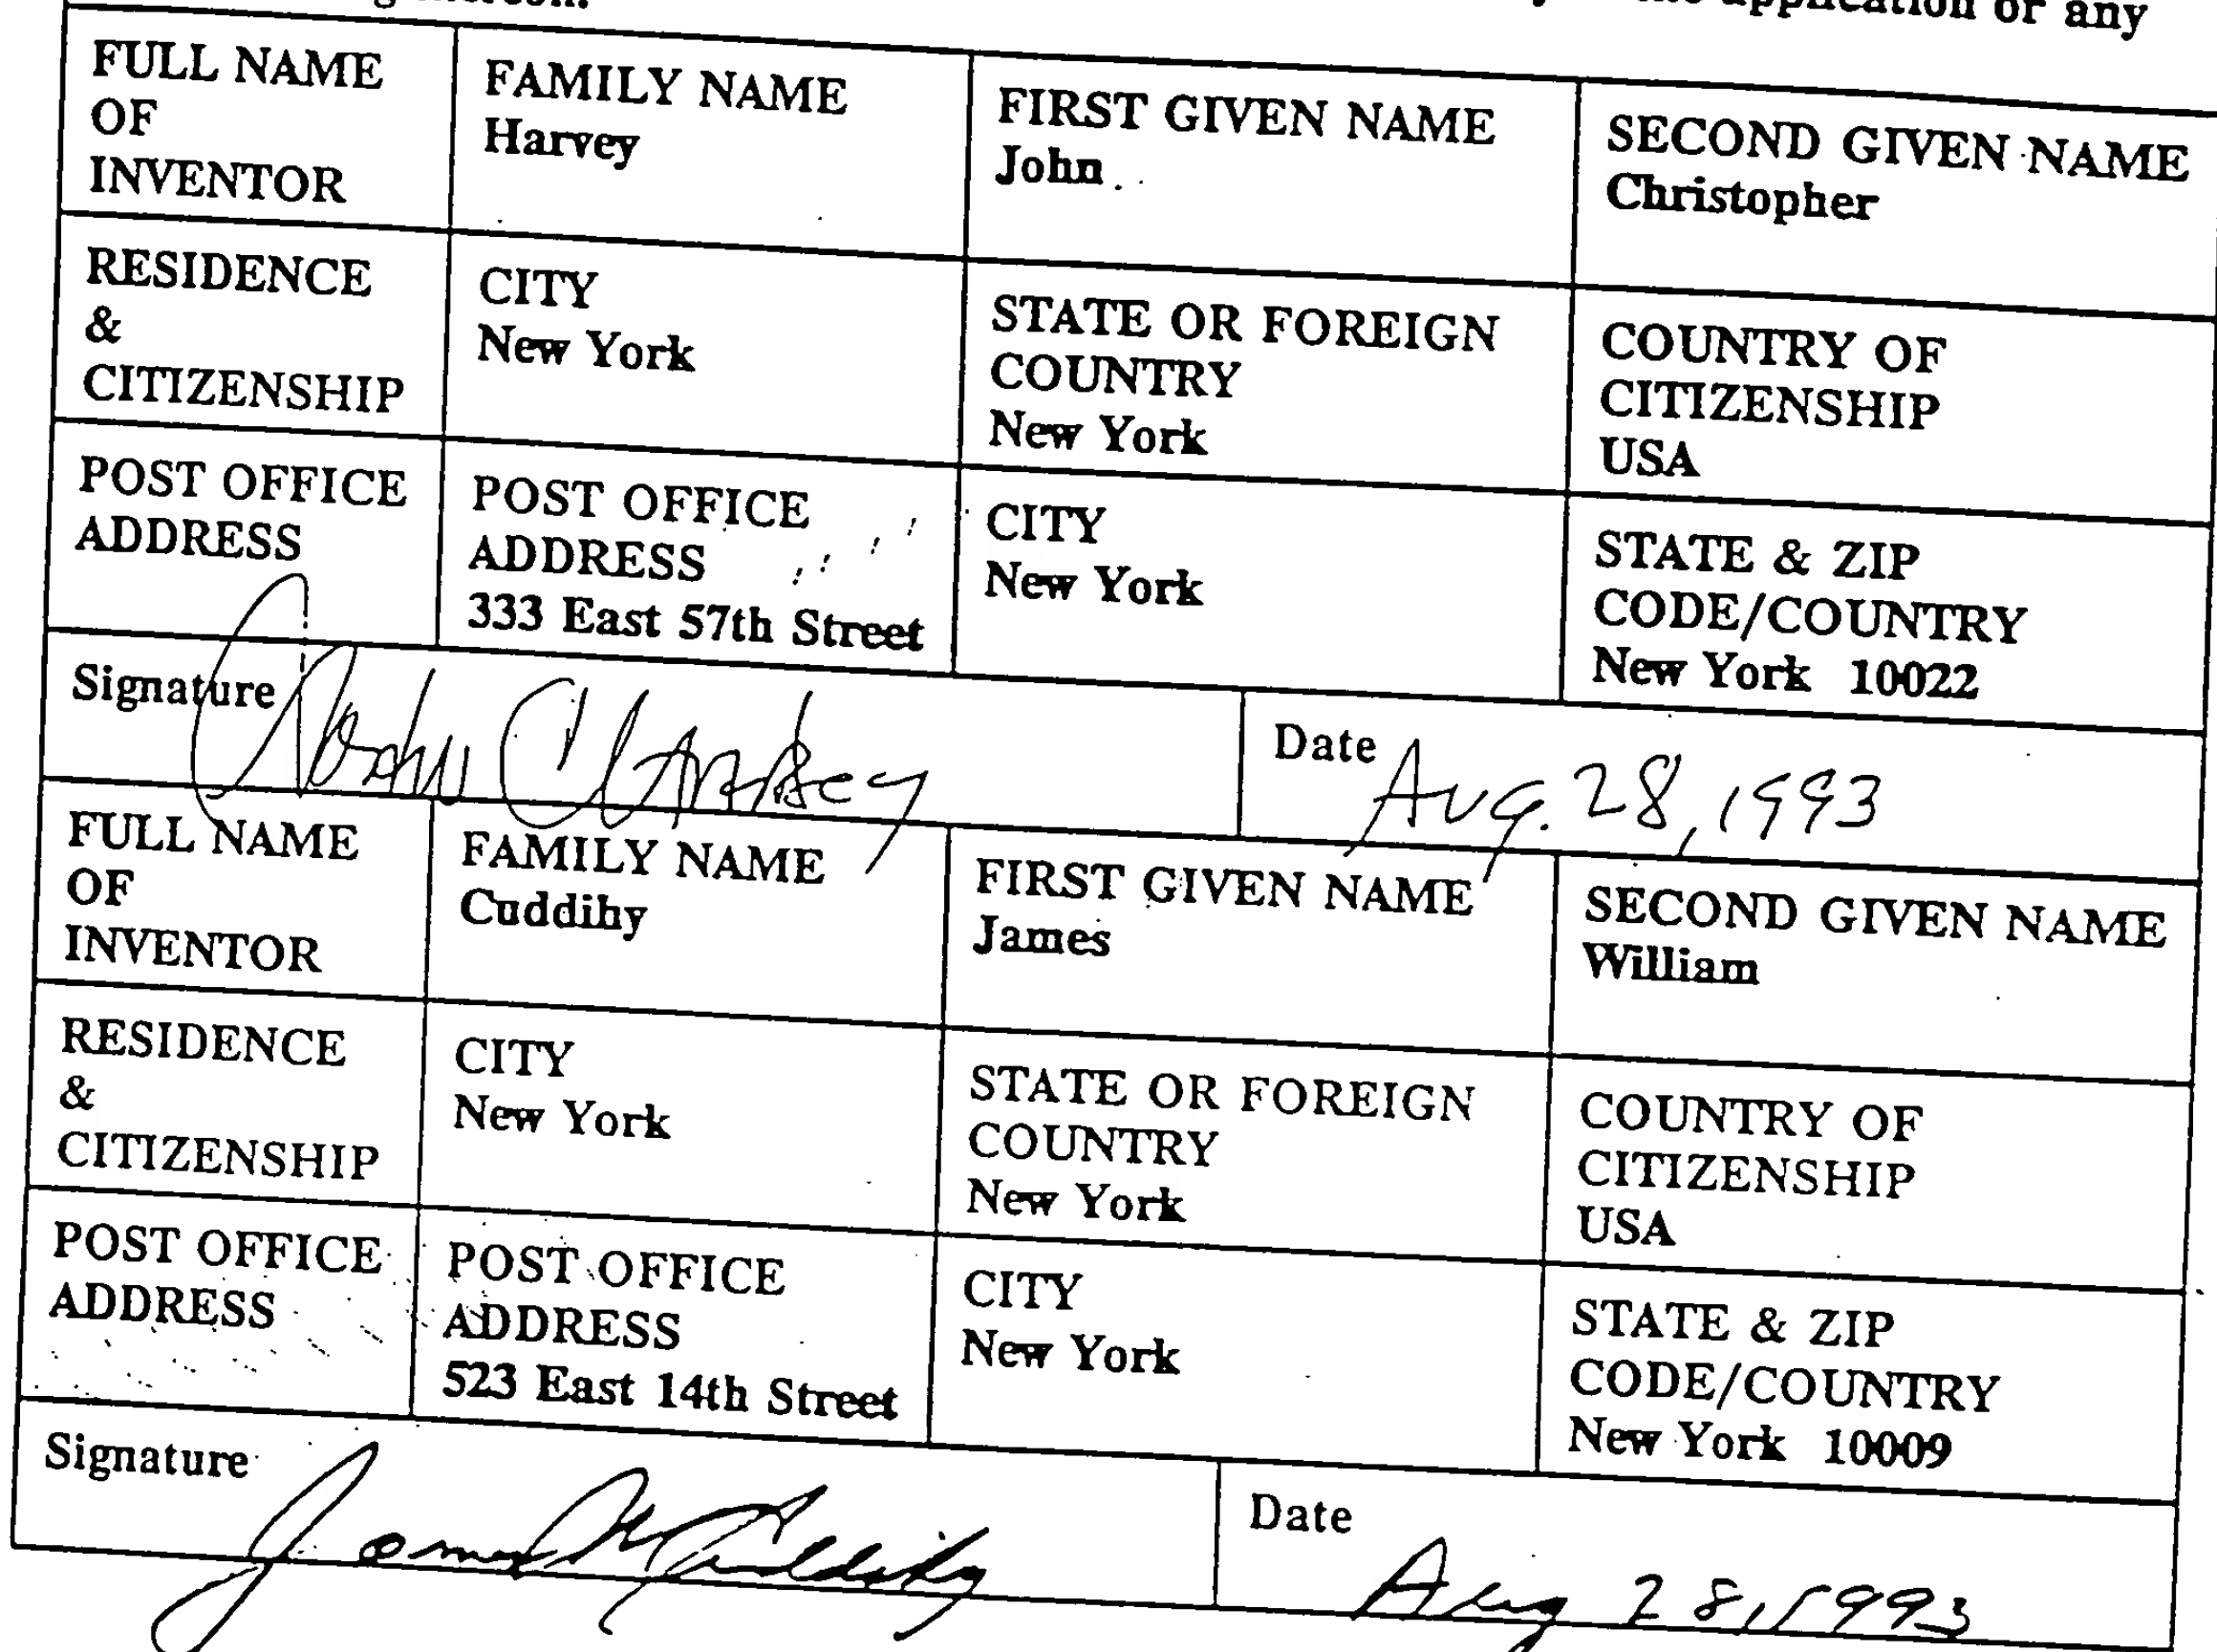 application or any
FULL NAME
OF
INVENTOR
FAMILY NAME
Harvey
FIRST GIVEN NAME
John
SECOND GIVEN NAME
Christopher
RESIDENCE
&
CITIZENSHIP
CITY
New York
STATE OR FOREIGN
COUNTRY
New York
COUNTRY OF
CITIZENSHIP
USA
POST OFFICE
ADDRESS
POST OFFICE
ADDRESS
333 East 57th Street
CITY
New York
STATE & ZIP
CODE/COUNTRY
New York 10022
Signature
John C Harvey
Date
Aug. 28, 1993
FULL NAME
OF
INVENTOR
FAMILY NAME
Cuddihy
FIRST GIVEN NAME
James
SECOND GIVEN NAME
William
RESIDENCE
&
CITIZENSHIP
CITY
New York
STATE OR FOREIGN
COUNTRY
New York
COUNTRY OF
CITIZENSHIP
USA
POST OFFICE
ADDRESS
POST OFFICE
ADDRESS
523 East 14th Street
CITY
New York
STATE & ZIP
CODE/COUNTRY
New York 10009
Signature
James W Cuddihy
Date
Aug 28, 1993